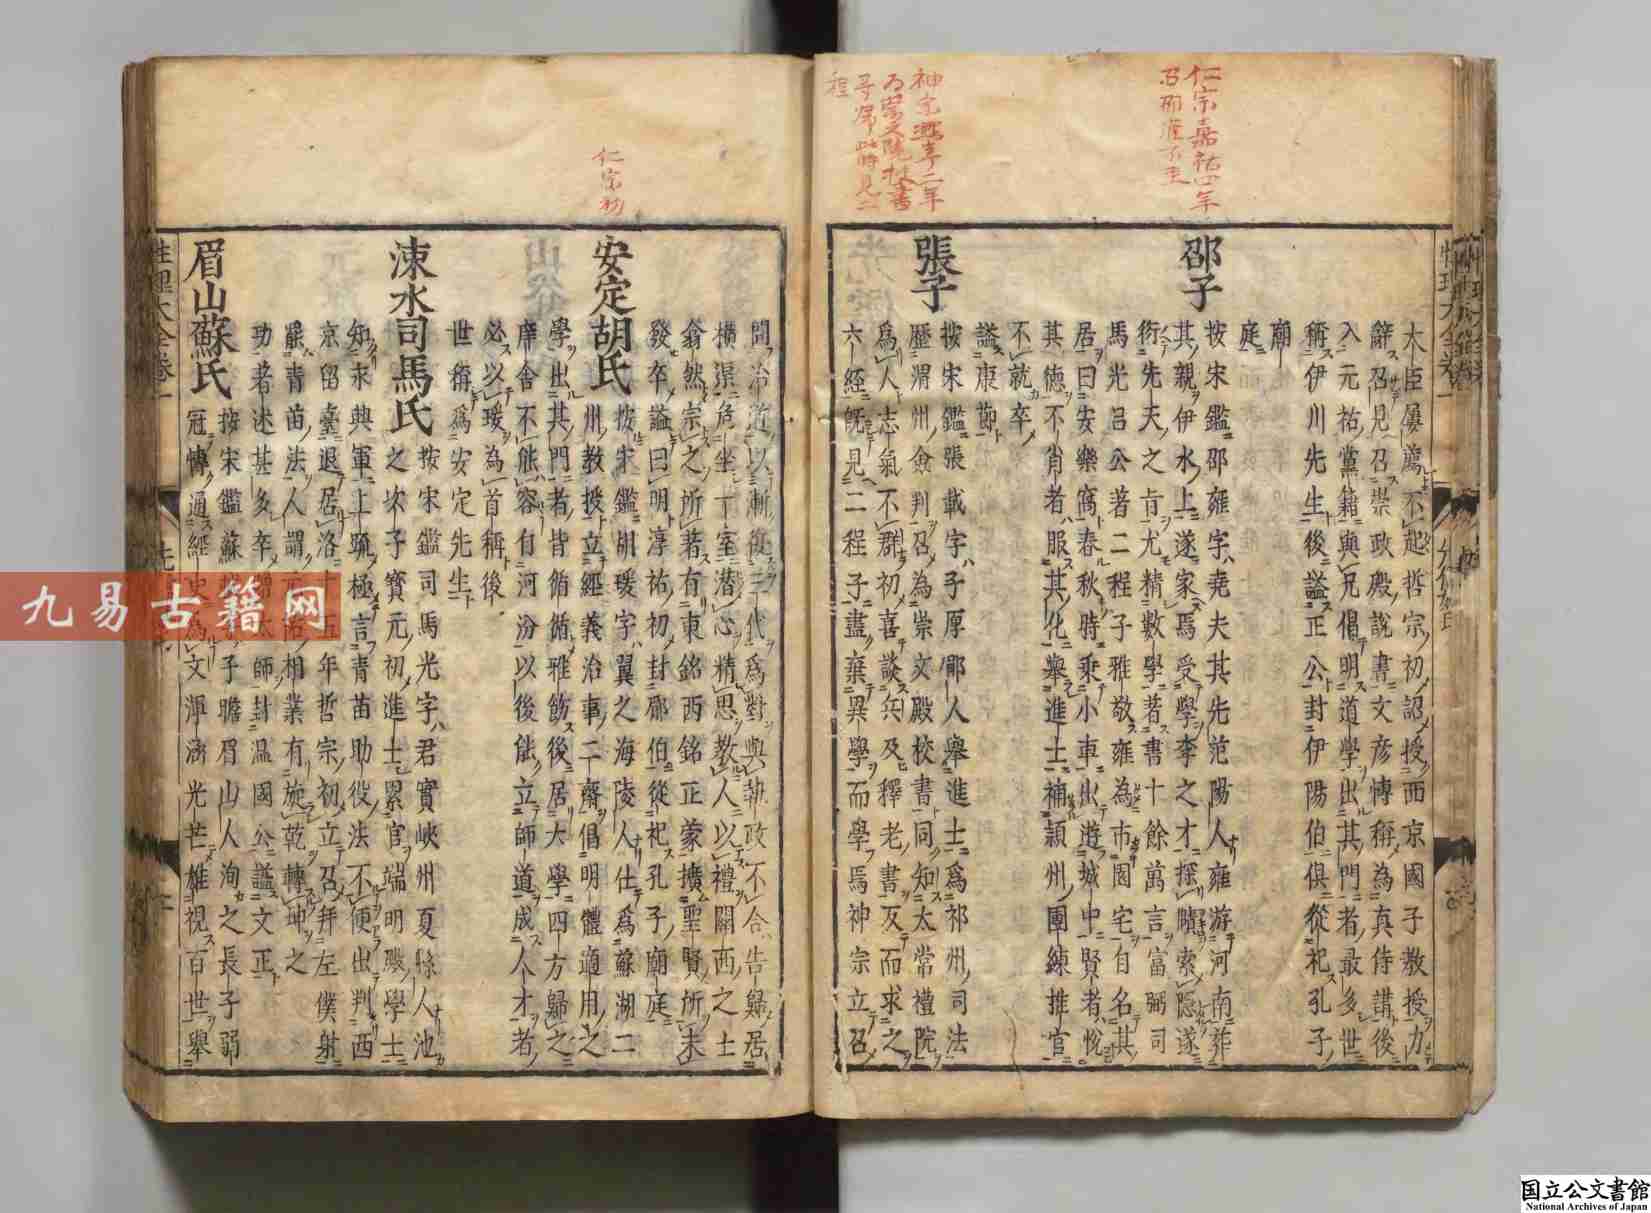 仁宗嘉祐四年
神宗熙寧二年
為崇文院校書
大臣屢薦不起哲宗初詔授西京國子教授力
辭召見召崇政殿說書文彥博稱為真侍講後
入元祐黨籍與兄倡明道學出其門者最多世
稱伊川先生後謚正公封伊陽伯俱從祀孔子
廟
庭
邵子
按宋鑑邵雍字堯夫其先范陽人雍游河南葬
其親伊水上遂家焉受學李之才探賾索隱遂
衍先天之旨尤精數學著書十餘萬言富弼司
馬光呂公著二程子雅敬雍為市園宅自名其
居曰安樂窩春秋時乘小車出遊城中賢者悅
其德不肖者服其化舉進士補潁州團練推官
不就卒
謚康節
張子
按宋鑑張載字子厚郿人舉進士為祁州司法
歷渭州僉判召為崇文殿校書同知太常禮院
為人志氣不群初喜談兵及釋老書反而求之
六經旣見二程子盡棄異學而學焉神宗立召
問治道以漸復三代為對與執政不合告歸居
橫渠危坐一室潛心精思教人以禮關西之士
翕然宗之所著有東銘西銘正蒙擴聖賢所未
發卒謚曰明淳祐初封郿伯從祀孔子廟庭
安定胡氏
按宋鑑胡瑗字翼之海陵人仕為蘇湖二
州教授立經義治事二齋倡明體適用之
學出其門者皆循循雅飭後居太學四方歸之
庠舍不能容自河汾以後能立師道成人才者
必以瑗為首稱後
世稱為安定先生
仁宗初
涑水司馬氏
按宋鑑司馬光字君實峽州夏縣人池
之次子寶元初進士累官端明殿學士
知永興軍上疏極言青苗助役法不便出判西
京留臺退居洛十五年哲宗初立召拜左僕射
罷青苗法人謂元祐相業有旋乾轉坤之
功者述甚多卒贈太師封溫國公謚文正
眉山蘇氏
按宋鑑蘇軾字子瞻眉山人洵之長子弱
冠博通經史為文渾涵光芒雄視百世舉
性理大全卷一
九易古籍网
国立公文書館
National Archives of Japan